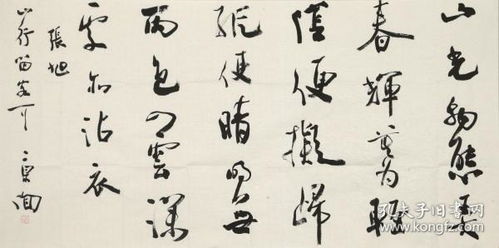 山光物態弄
春暉莫為輕
陰便擬歸
縱使晴明無
雨色入雲深
處亦沾衣
張旭
山行留客
孔夫子旧书网